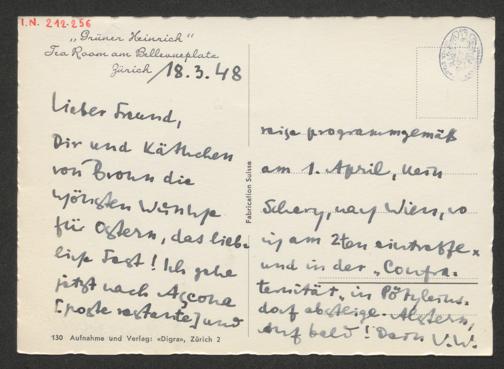 I.N. 212.256
„Grüner Heinrich"
Tea Room am Bellevueplatz
Zürich / 18.3.48
Lieber Freund,
Dir und Käthchen
von Bronn die
schönsten Wünsche
für Ostern, das lieb-
liche Fest! Ich gehe
jetzt nach Ascona
[poste restante] und
reise programmgemäß
am 1. April, kein
Scherz, nach Wien, wo
ich am 2ten eintreffe
und in der „Confra-
ternität" in Pötzleins-
dorf absteige.
Auf bald! Dein V.W.
Fabrication Suisse
130 Aufnahme und Verlag: «Digra», Zürich 2